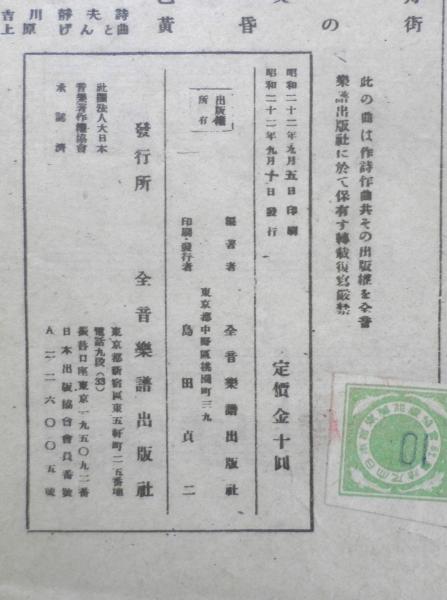 街の黄昏
詩 夫
曲 上原げんと
此の曲は作詩作曲共その出版權を全音
樂譜出版社に於て保有す轉載復寫嚴禁
昭和二十二年九月五日印刷
昭和二十二年九月十日發行
定價金十圓
出版權
所有
編著者 全音樂譜出版社
東京都中野區桃園町三九
印刷・發行者 島田貞二
發行所 全音樂譜出版社
東京都新宿區東五軒町二五番地
電話九段(33)
振替口座東京一九五〇九二番
日本出版協會會員番號
A二二六〇〇五號
社團法人大日本
音樂著作權協會
承認濟
10